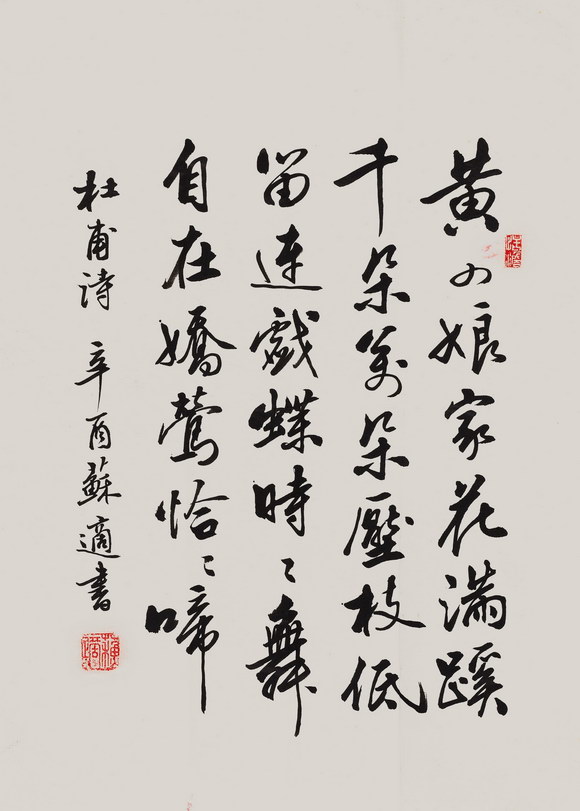 黄四娘家花滿蹊
千朵萬朵壓枝低
留連戲蝶時〻舞
自在嬌鶯恰〻啼
杜甫詩 辛酉蘇適書